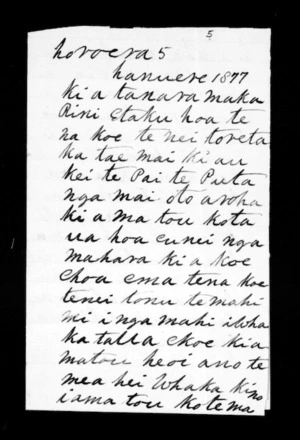 5
horoera 5
hanuere 1877
Ki a tanara maka
Rini Etaku hoa te
na koe te nei toreta
ka tae mai ki au
kei te Pai te Puta
nga mai oto aroha
ki a ma tou kota
ua hoa eunei nga
mahara ki a koe
ehoa ema tena koe
tenei tonu te mahi
i nga mahi iwha
ka talla ekoe kia
matou heoi ano te
mea hei whaka kino
iama tou kotema